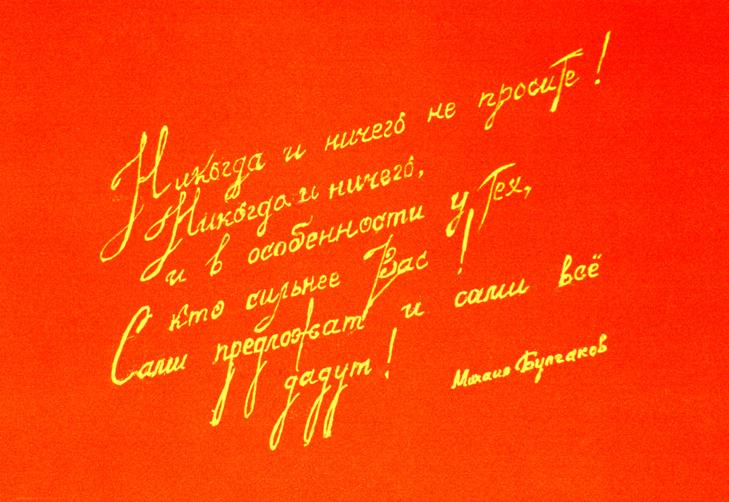 Никогда и ничего не просите!
Никогда и ничего,
и в особенности у Тех,
кто сильнее Вас!
Сами предложат и сами всё
дадут!
Михаил Булгаков